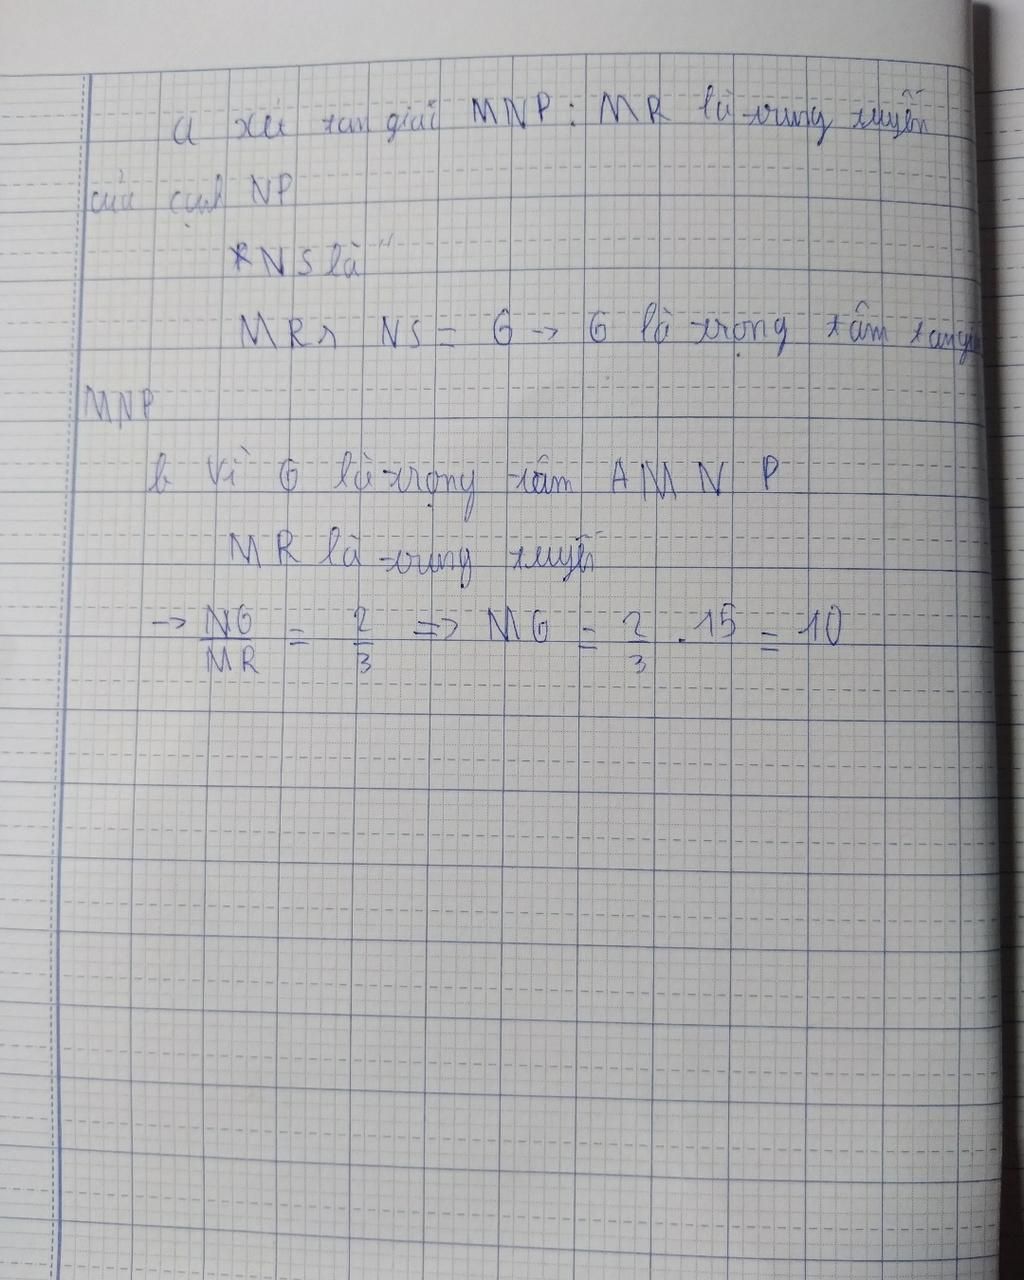 a xét tam giác MNP : MR là trung tuyến
của cạnh NP
* NS là "
MR ∩ NS = G → G là trọng tâm tam giác
MNP
b Vì G là trọng tâm ΔMNP
MR là trung tuyến
→ NG/MR = 2/3 => MG = 2/3 . 15 = 10